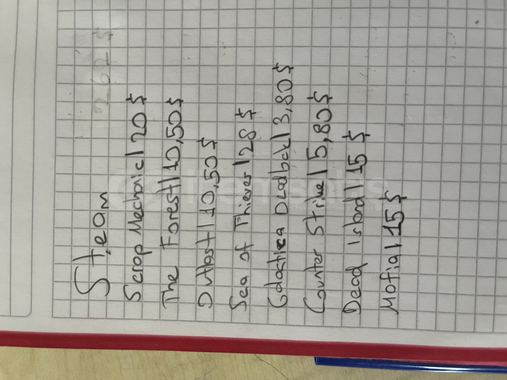 Steam
Scrap Mechanic | 20$
The Forest | 10,50$
Outlast | 10,50$
Sea of Thieves | 28$
Counter Strike | 5,80$
Dead Island | 15$
Mafia | 15$